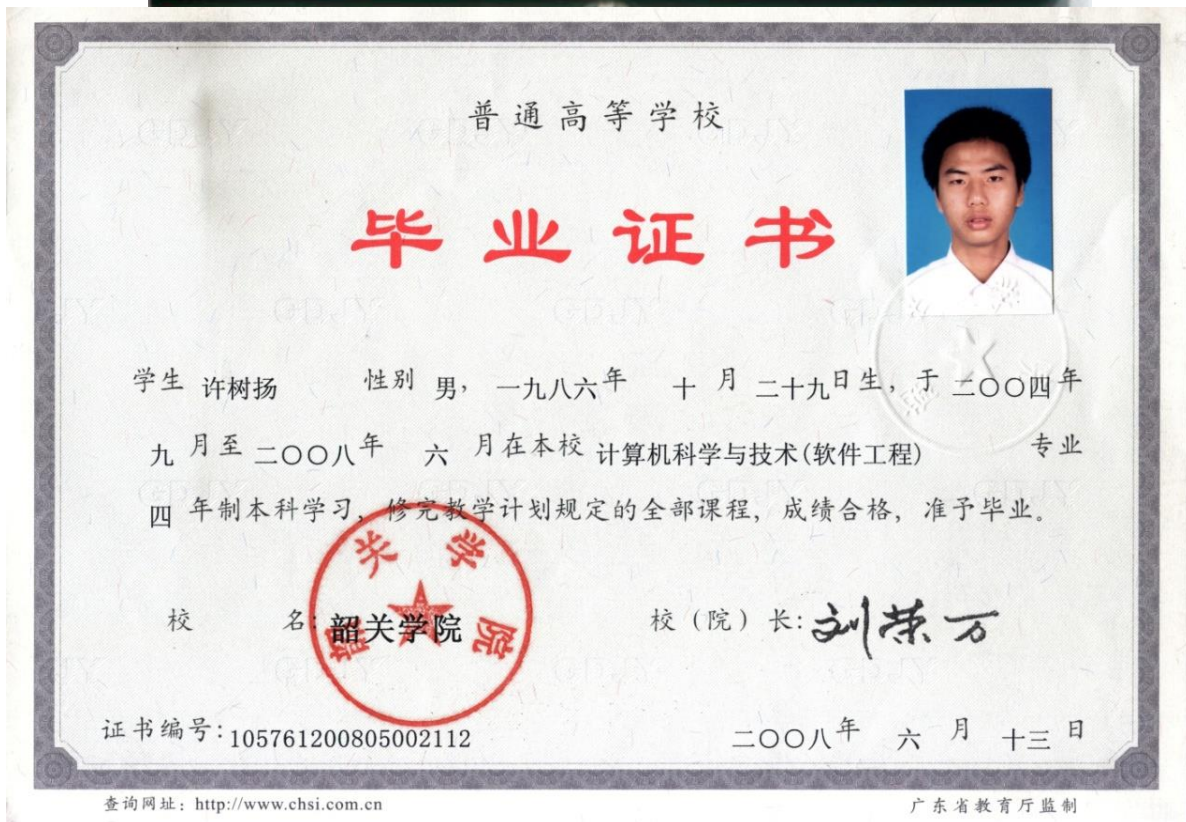 普通高等学校
毕业证书
学生 许树扬 性别 男， 一九八六年 十 月 二十九日生，于 二〇〇四年
九 月至 二〇〇八年 六 月在本校 计算机科学与技术(软件工程) 专业
四 年制本科学习，修完教学计划规定的全部课程，成绩合格，准予毕业。
校 名：韶关学院 校（院）长：刘荣万
韶关学院
证书编号：105761200805002112 二〇〇八年 六 月 十三 日
查询网址：http://www.chsi.com.cn 广东省教育厅监制